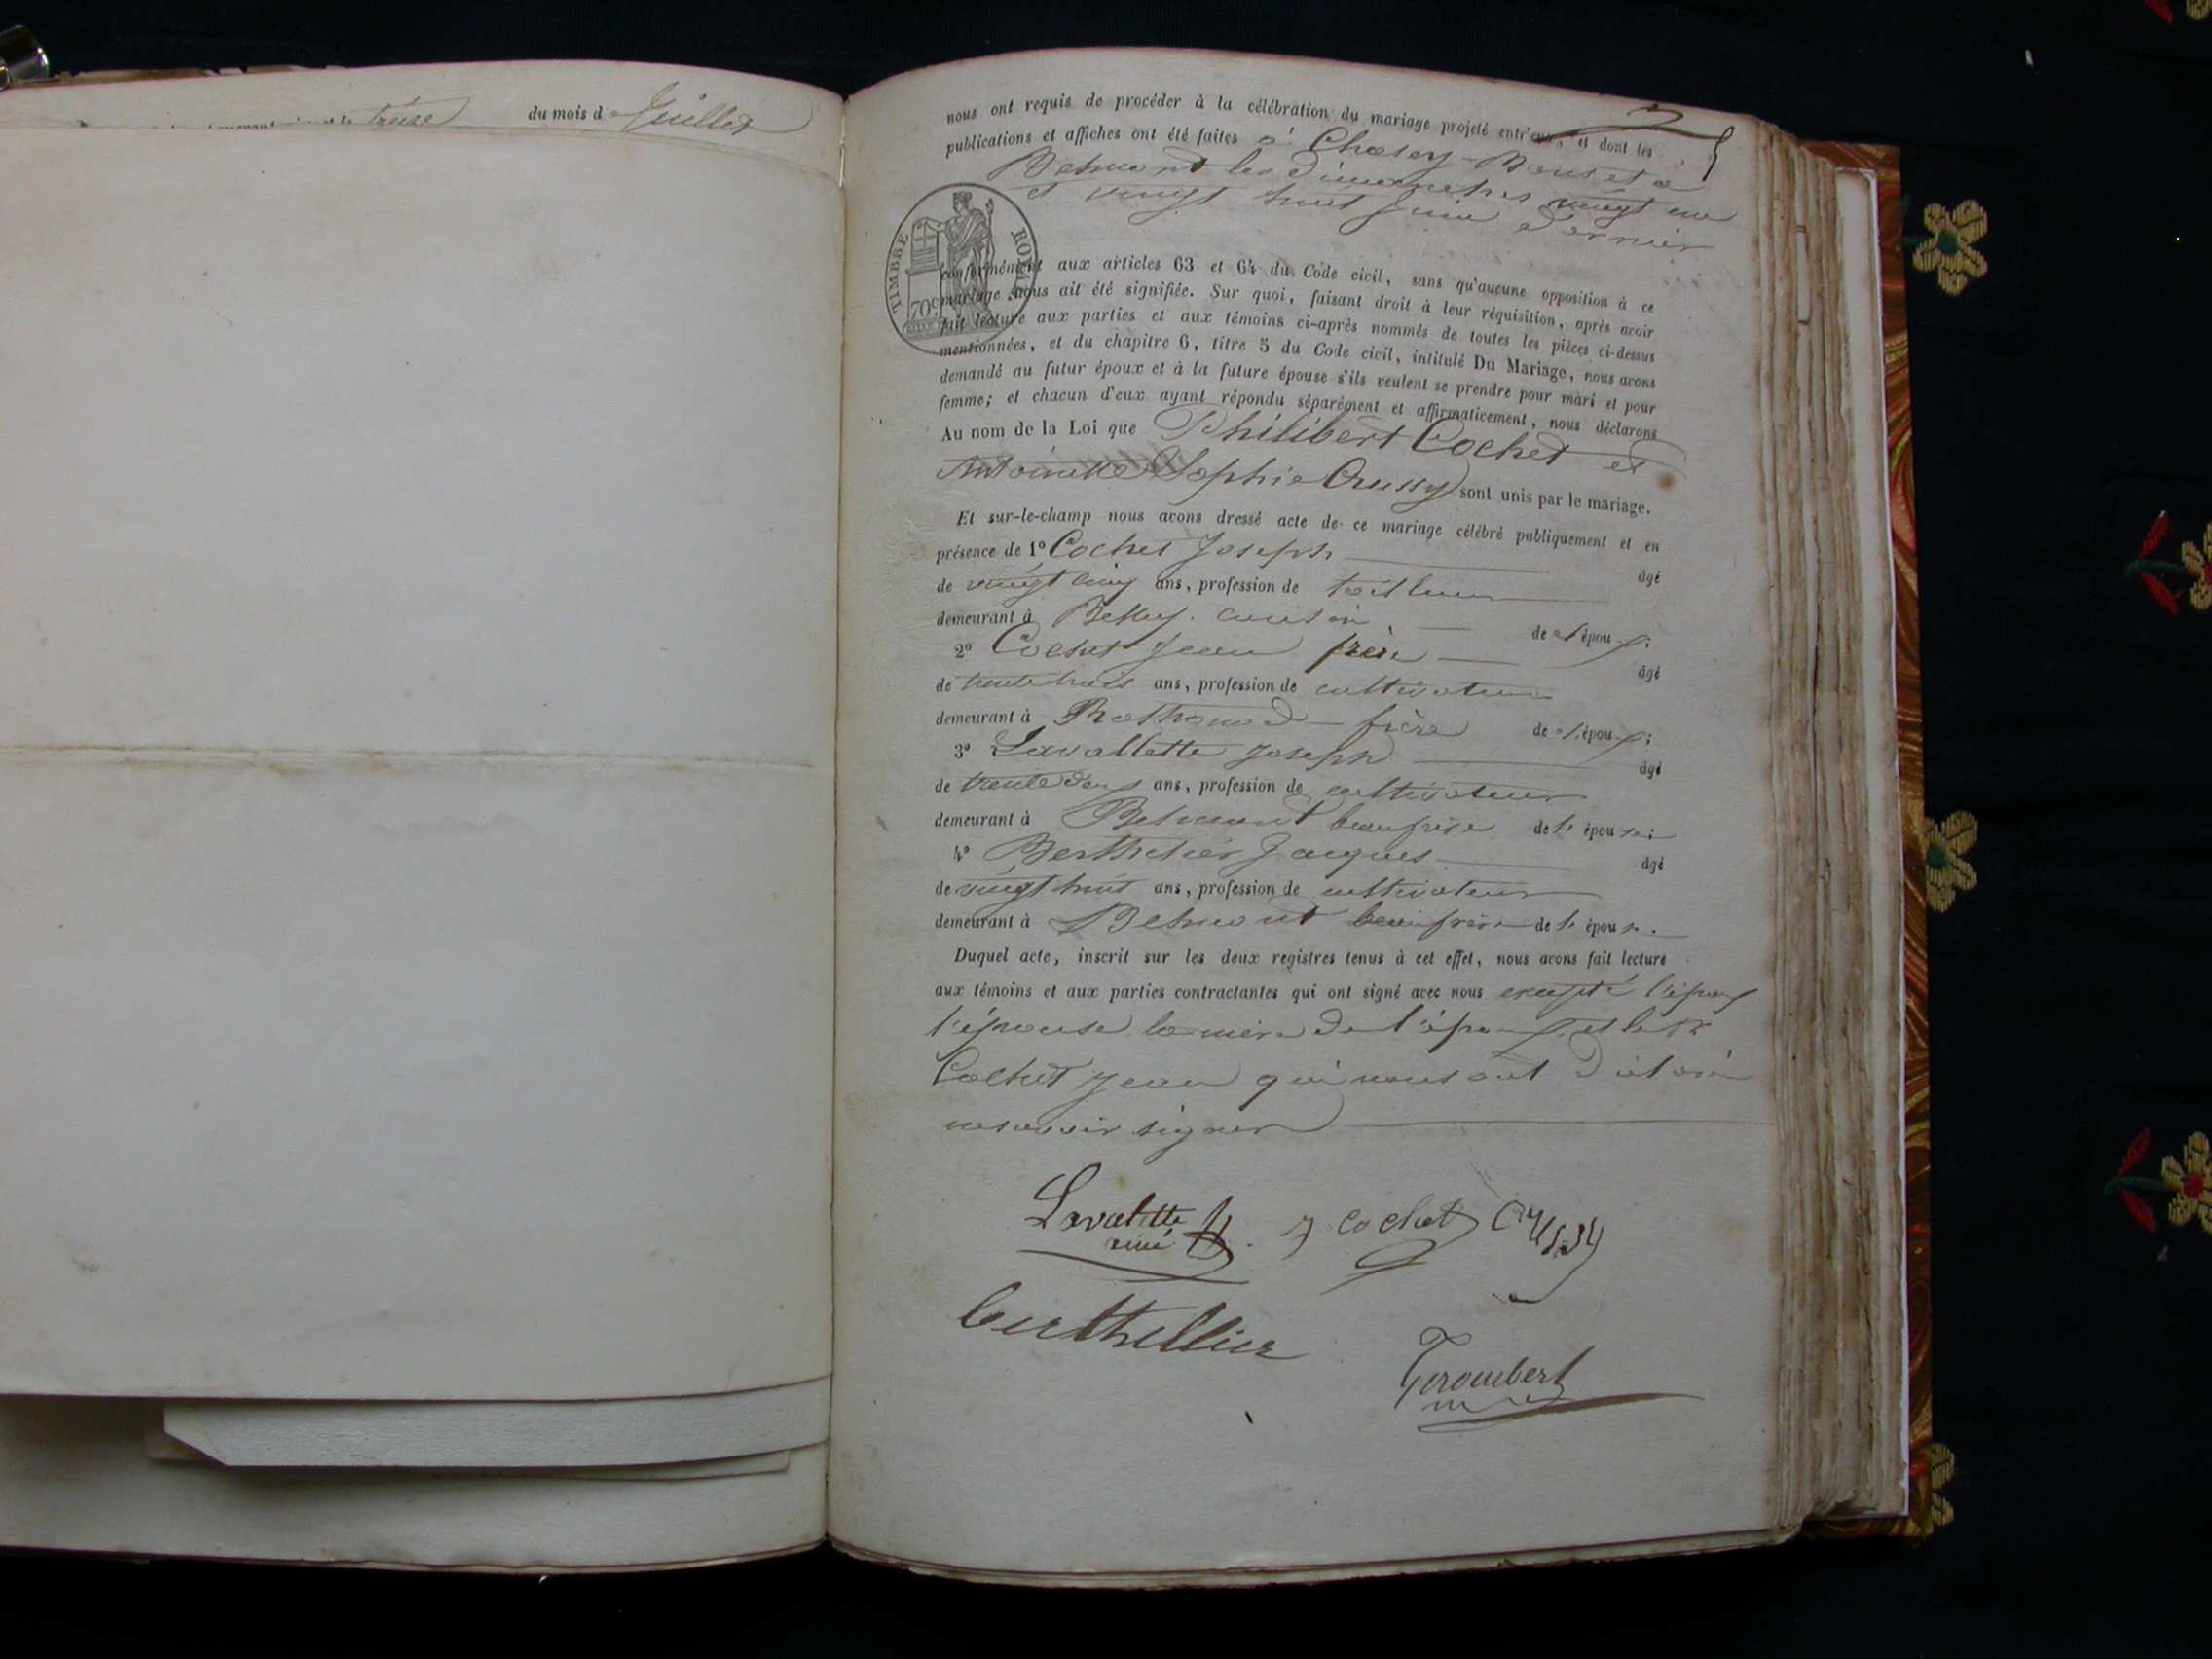 treise du mois d Juillet
nous ont requis de procéder à la célébration du mariage projeté entr'eux, et dont les
publications et affiches ont été faites à Chasey-Bons et à
Belmont les dimanches vingt un
et vingt huit Juin dernier
TIMBRE ROYAL
70c
conformément aux articles 63 et 64 du Code civil, sans qu'aucune opposition à ce
mariage nous ait été signifiée. Sur quoi, faisant droit à leur réquisition, après avoir
fait lecture aux parties et aux témoins ci-après nommés de toutes les pièces ci-dessus
mentionnées, et du chapitre 6, titre 5 du Code civil, intitulé Du Mariage, nous avons
demandé au futur époux et à la future épouse s'ils veulent se prendre pour mari et pour
femme; et chacun d'eux ayant répondu séparément et affirmativement, nous déclarons
Au nom de la Loi que Philibert Cochet et
Antoinette Sophie Crussy sont unis par le mariage.
Et sur-le-champ nous avons dressé acte de ce mariage célébré publiquement et en
présence de 1° Cochet Joseph âgé
de vingt cinq ans, profession de tailleur
demeurant à Belley. cousin de l'époux;
2° Cochet Jean frère âgé
de trente trois ans, profession de cultivateur
demeurant à Rothonod frère de l'époux;
3° Lavallette Joseph âgé
de trente deux ans, profession de cultivateur
demeurant à Belmont beaufrère de l'épouse;
4° Berthelier Jacques âgé
de vingt huit ans, profession de cultivateur
demeurant à Belmont beaufrère de l'épouse.
Duquel acte, inscrit sur les deux registres tenus à cet effet, nous avons fait lecture
aux témoins et aux parties contractantes qui ont signé avec nous excepté l'époux
l'épouse la mère de l'époux et le Sr
Cochet Jean qui nous ont déclaré
ne savoir signer
Lavalette J. cochet Crussy
berthellier
Gerombert